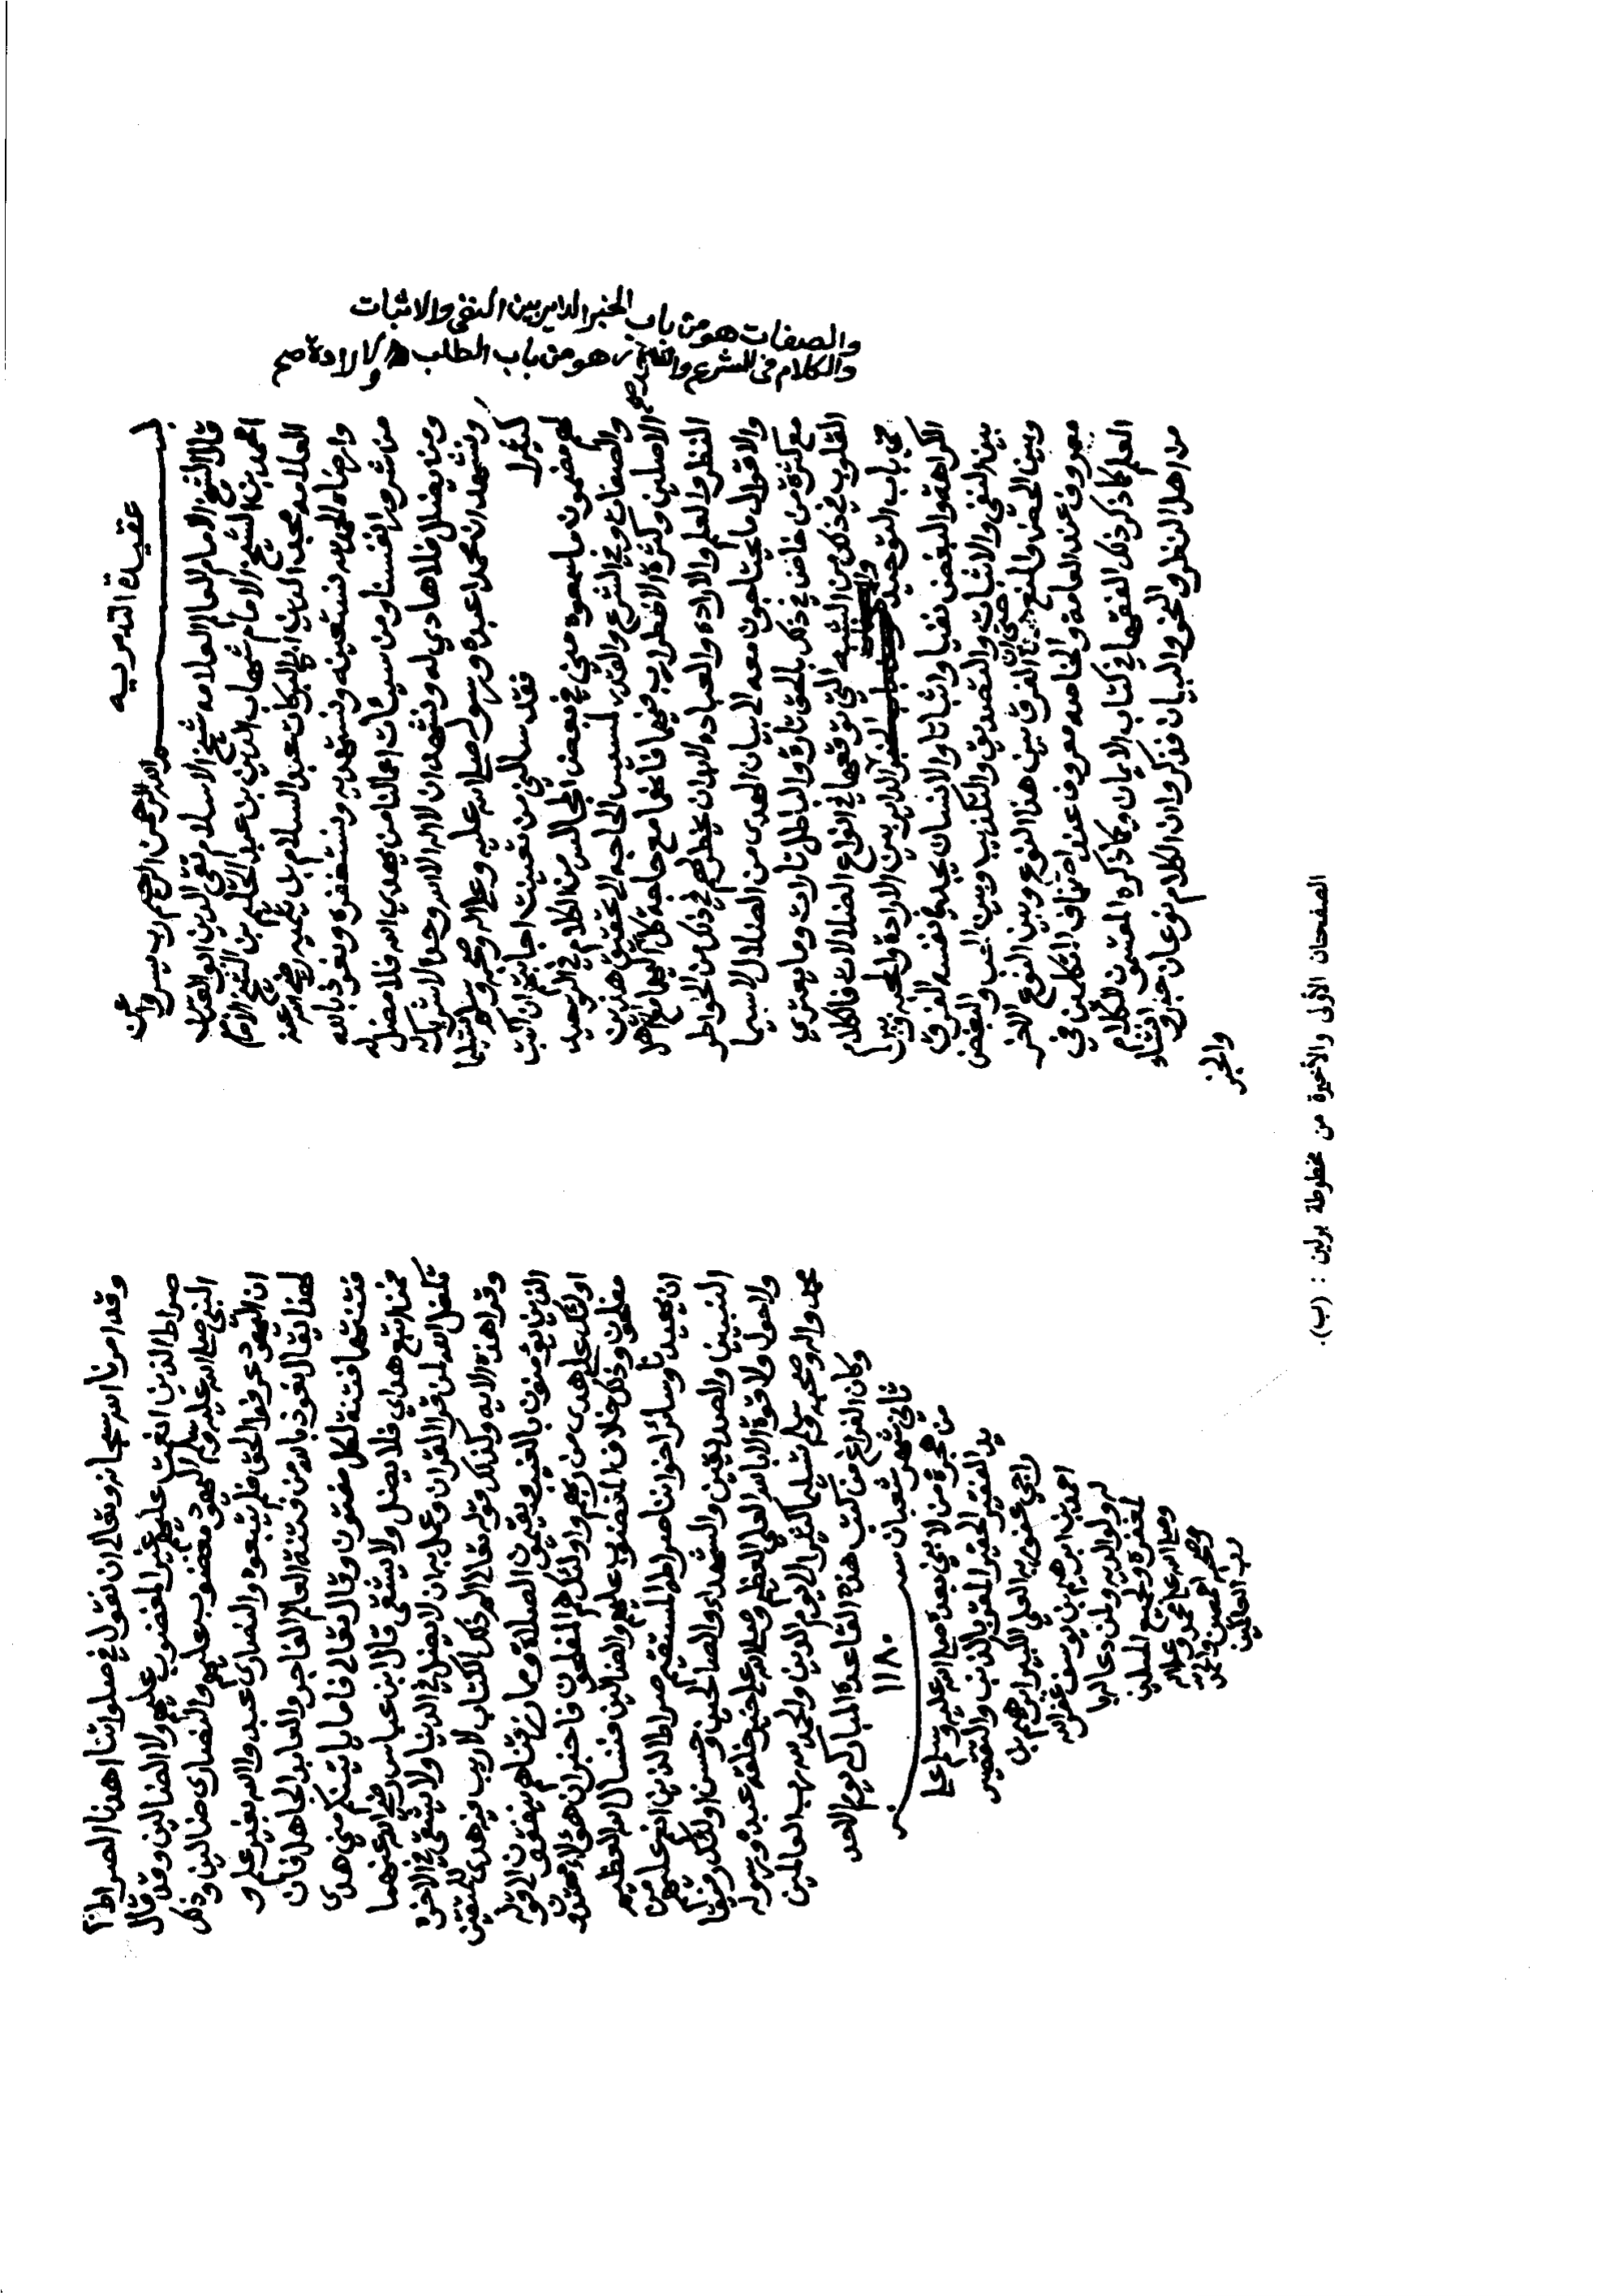 عقيدة التدمريه
بسم الله الرحمن الرحيم رب يسر واعن
قال الشيخ الامام العالم العلامه شيخ الاسلام تقي الدين ابو العباس
احمد بن الشيخ الامام شهاب الدين بن عبد الحليم بن الشيخ الامام
العلامه مجد الدين ابي البركات عبد السلام بن تيميه رضي الله عنه
وارضاه الحمد لله نستعينه ونستهديه ونستغفره ونعوذ بالله
من شرور انفسنا ومن سيئات اعمالنا من يهدي الله فلا مضل له
ومن يضلل فلا هادي له ونشهد ان لا اله الا الله وحده لا شريك له
ونشهد ان محمدا عبده ورسوله صلى الله عليه وعلى اله وصحبه وسلم تسليما
كثيرا فقد سالني من تعينت اجابتهم ان اكتب
لهم مضمون ما سمعوه مني في بعض المجالس من الكلام في التوحيد
والصفات وفي الشرع والقدر لمسيس الحاجه الى تحقيق هذين
الاصلين وكثرة الاضطراب فيهما فانهما مع حاجة كل احد اليهما ومع ان اهل
النظر والعلم والاراده والعباده لا بد ان يخطر لهم في ذلك من الخواطر
والاقوال ما يحتاجون معه الى بيان الهدى من الضلال لا سيما
مع كثرة من خاض في ذلك بالحق تارة والباطل تارات وما يعتري
القلوب في ذلك من الشبه التي توقعها في انواع الضلالات فالكلام
في باب التوحيد والصفات هو من باب الخبر الداير بين النفي والاثبات
والكلام في الشرع والقدر هو من باب الطلب والارادة صح
الداير بين الارادة والمحبه وبين
الكراهة والبغض نفيا واثباتا والانسان يجد في نفسه الفرق
بين النفي والاثبات والتصديق والتكذيب وبين الحب والبغض
وبين الحض والمنع حتى ان الفرق بين هذا النوع وبين النوع الاخر
معروف عند العامة والخاصه معروف عند اصناف المتكلمين في
العلم كما ذكر ذلك الفقها في كتاب الايمان وكما ذكره المقسمون للكلام
من اهل النظر والنحو والبيان فذكروا ان الكلام نوعان خبر وانشاء
والخبر
وقد امرنا الله سبحانه وتعالى ان نقول في صلواتنا اهدنا الصراط
صراط الذين انعمت عليهم غير المغضوب عليهم ولا الضالين وقد قال
النبي صلى الله عليه وسلم اليهود مغضوب عليهم والنصارى ضالين وذلك
ان اليهود عرفوا الحق فلم يتبعوه والنصارى عبدوا الله بغير علم و
لهذا يقال نعوذ بالله من فتنة العالم الفاجر والعابد الجاهل فان
فتنتهما فتنة لكل مفتون وقال تعالى فاما ياتينكم مني هدى
فمن اتبع هداي فلا يضل ولا يشقى قال ابن عباس رضي الله عنهما
تكفل الله لمن قرا القران وعمل به ان لا يضل في الدنيا ولا يشقى في الاخرة
وقرا هذه الايه وكذلك قوله تعالى الم ذلك الكتاب لا ريب فيه هدى للمتقين
الذين يؤمنون بالغيب ويقيمون الصلاة ومما رزقناهم ينفقون الى قوله
اولئك على هدى من ربهم واولئك هم المفلحون فاخبر ان هؤلاء مهتدون
مفلحون وذلك خلاف المغضوب عليهم والضالين فنسال الله العظيم
ان يهدينا وسائر اخواننا صراطه المستقيم صراط الذين انعم عليهم من
النبيين والصديقين والشهداء والصالحين وحسن اولئك رفيقا
ولا حول ولا قوة الا بالله العلي العظيم وصلى الله على خير خلقه عبده ورسوله
محمد واله وصحبه وسلم تسليما كثيرا الى يوم الدين والحمد لله رب العالمين
وكان الفراغ من كتب هذه القاعدة المباركه يوم الاحد
ثاني شهر شعبان سنة ١١٨٠
من هجرة من لا نبي بعده صلى الله عليه وسلم على
يد الفقير الحقير المقر بالذنب والتقصير
راجي عفو ربه العلي الكبير ابراهيم بن
احمد بن ابراهيم بن يوسف غفر الله
له ولوالديه ولمن دعا لهما
بالمغفرة ولجميع المسلمين
وصلى الله على محمد وعلى اله
وصحبه اجمعين والحمد لله
رب العالمين
الصفحتان الأولى والأخيرة من مخطوطة برلين : (ب).